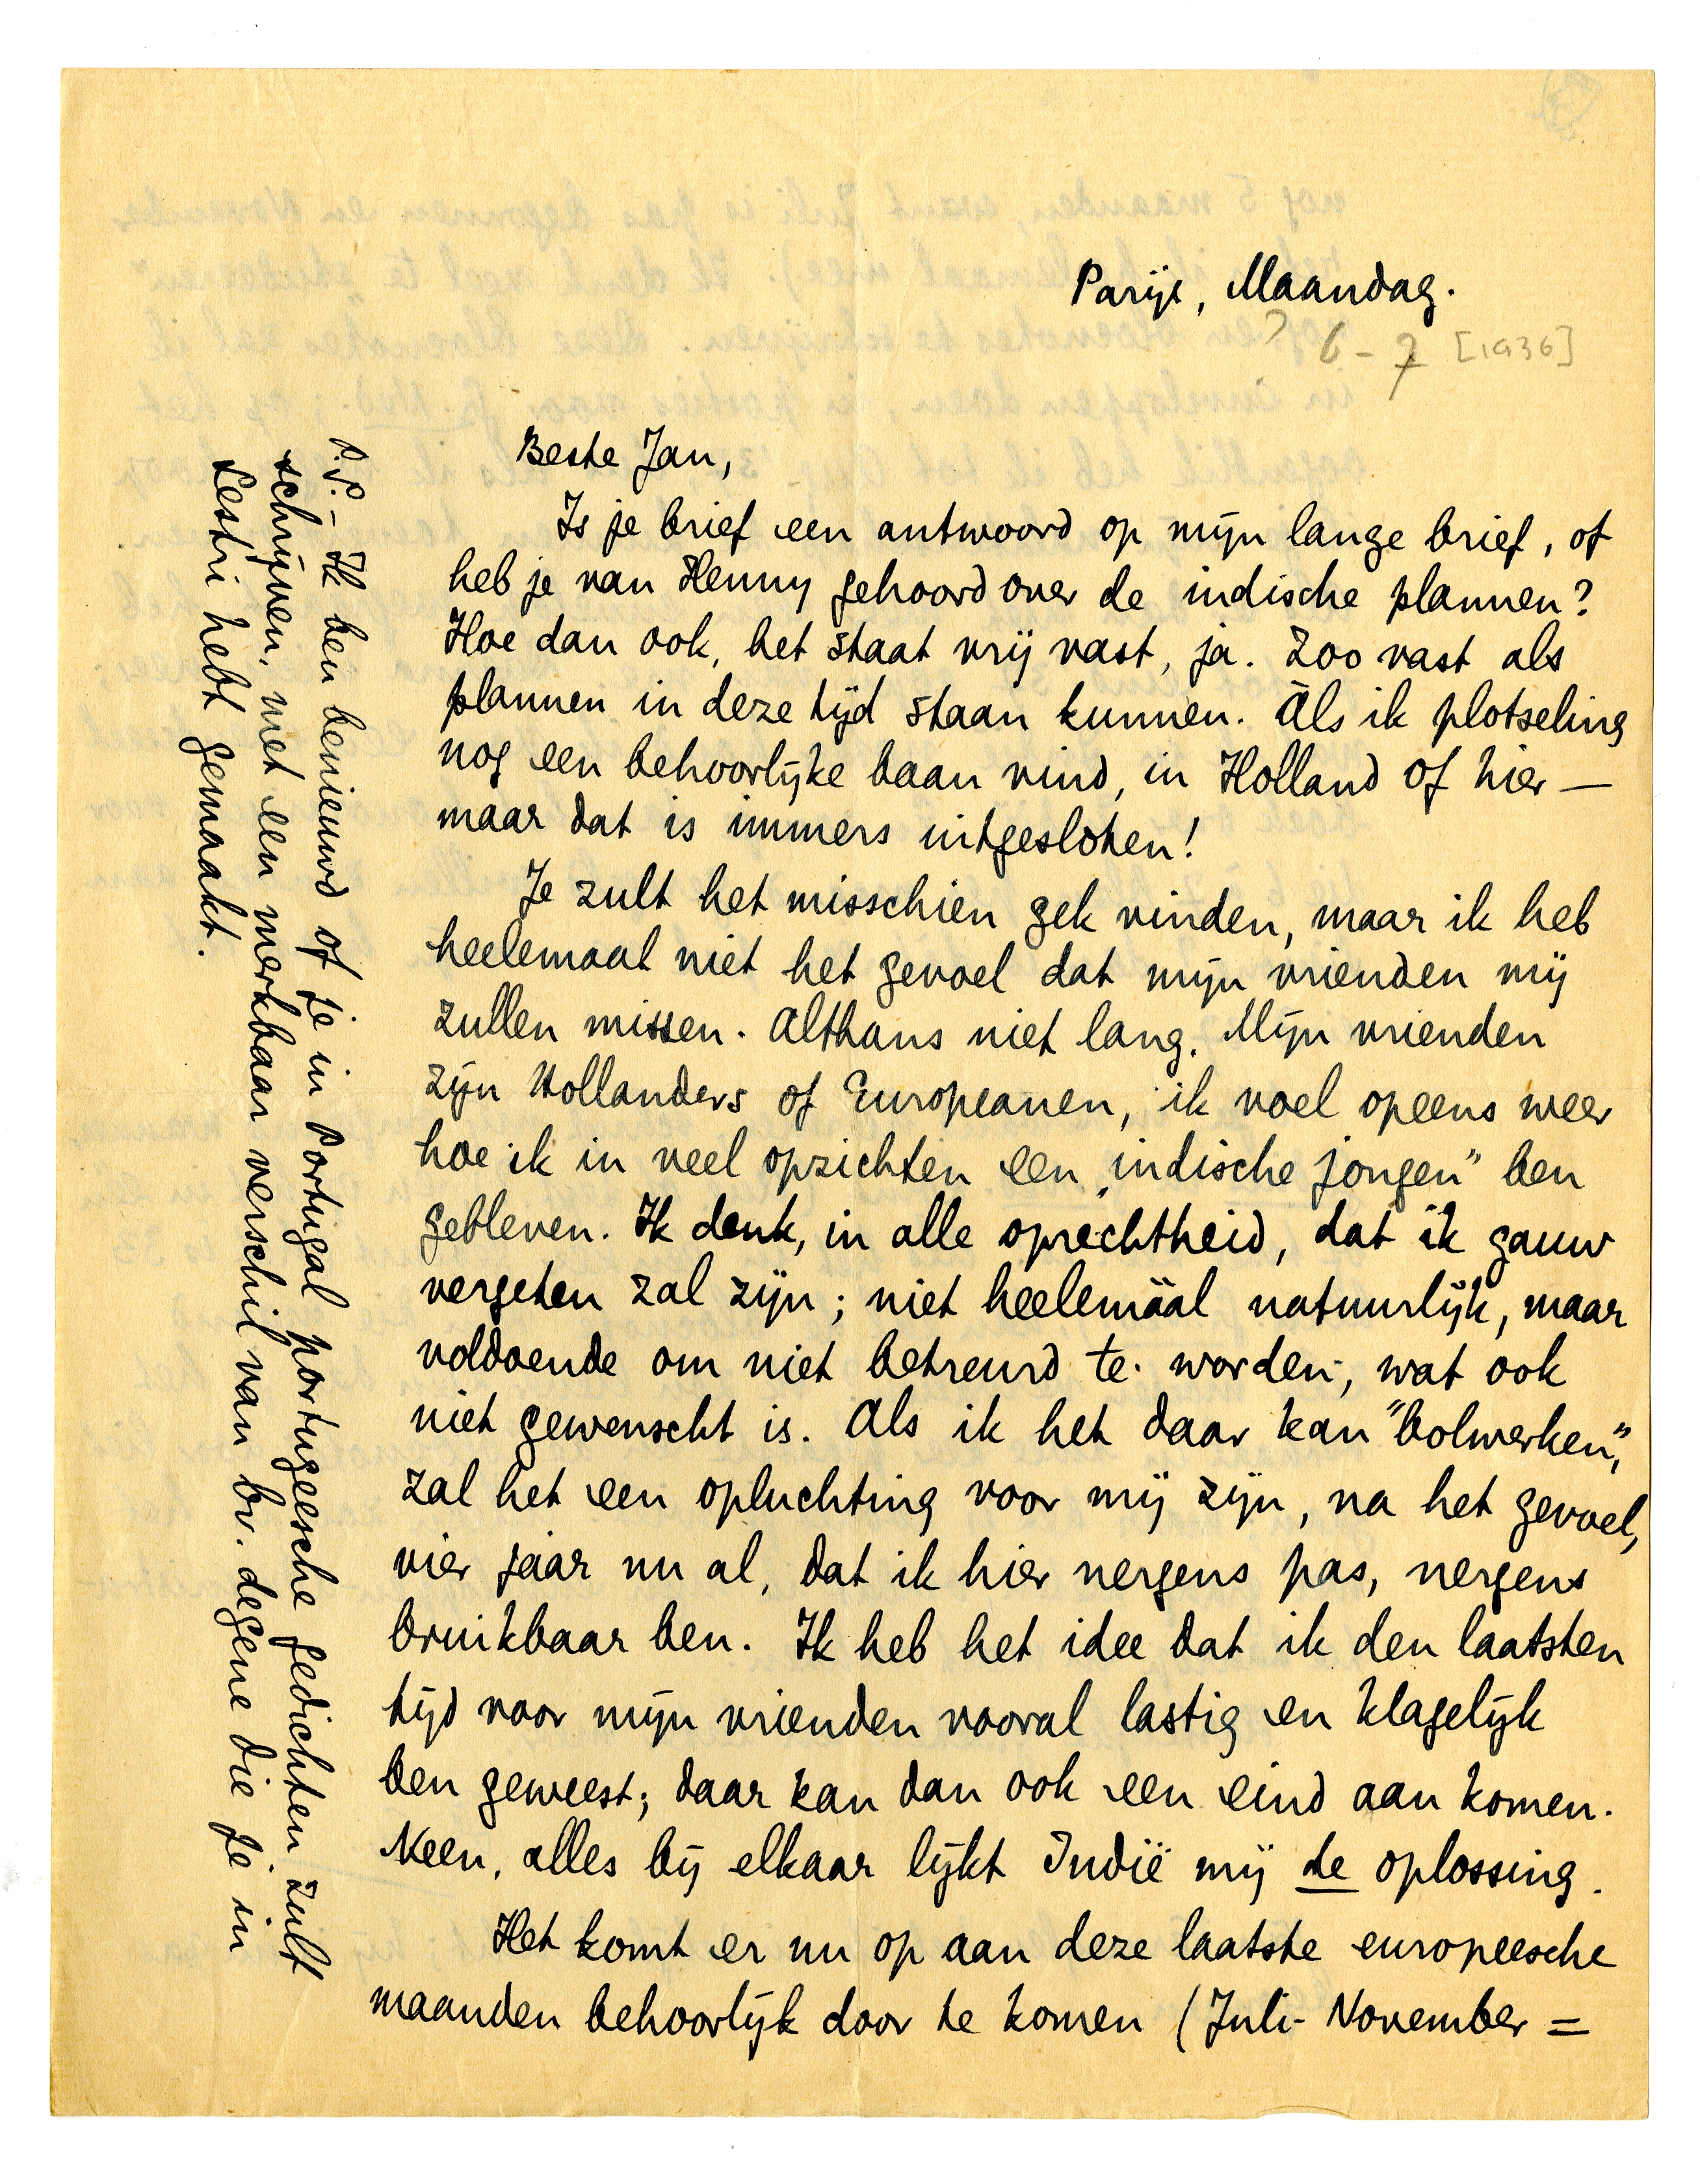 Parijs, Maandag.
? 6-7 [1936]
Beste Jan,
Is je brief een antwoord op mijn lange brief, of
heb je van Henny gehoord over de indische plannen?
Hoe dan ook, het staat vrij vast, ja. Zoo vast als
plannen in deze tijd staan kunnen. Als ik plotseling
nog een behoorlijke baan vind, in Holland of hier —
maar dat is immers uitgesloten!
Je zult het misschien gek vinden, maar ik heb
heelemaal niet het gevoel dat mijn vrienden mij
zullen missen. Althans niet lang. Mijn vrienden
zijn Hollanders of Europeanen, ik voel opeens weer
hoe ik in veel opzichten een „indische jongen" ben
gebleven. Ik denk, in alle oprechtheid, dat ik gauw
vergeten zal zijn; niet heelemáál natuurlijk, maar
voldoende om niet betreurd te worden, wat ook
niet gewenscht is. Als ik het daar kan "bolwerken",
zal het een opluchting voor mij zijn, na het gevoel,
vier jaar nu al, dat ik hier nergens pas, nergens
bruikbaar ben. Ik heb het idee dat ik den laatsten
tijd voor mijn vrienden vooral lastig en klagelijk
ben geweest; daar kan dan ook een eind aan komen.
Neen, alles bij elkaar lijkt Indië mij de oplossing.
Het komt er nu op aan deze laatste europeesche
maanden behoorlijk door te komen (Juli-November =
P.S.- Ik ben benieuwd of je in Portugal portugeesche gedichten zult
schrijven, met een merkbaar verschil van bv. degene die je in
Sestri hebt gemaakt.